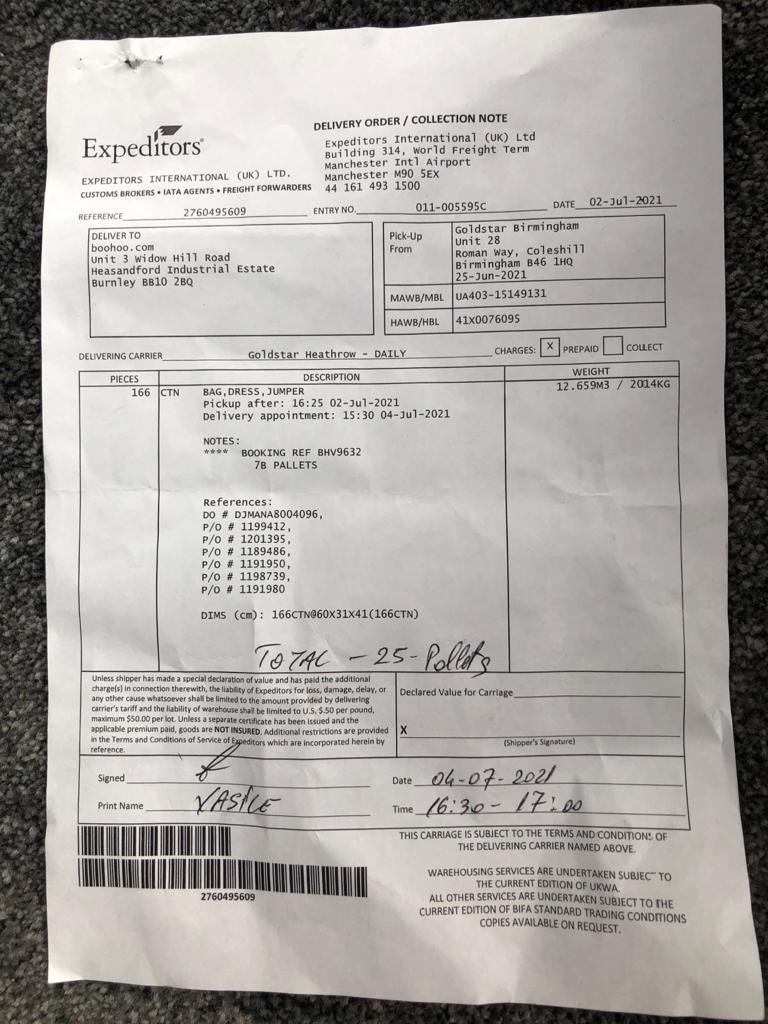 Expeditors
EXPEDITORS INTERNATIONAL (UK) LTD.
CUSTOMS BROKERS • IATA AGENTS • FREIGHT FORWARDERS
DELIVERY ORDER / COLLECTION NOTE
Expeditors International (UK) Ltd
Building 314, World Freight Term
Manchester Intl Airport
Manchester M90 5EX
44 161 493 1500
REFERENCE 2760495609 ENTRY NO. 011-005595C DATE 02-Jul-2021
DELIVER TO
boohoo.com
Unit 3 Widow Hill Road
Heasandford Industrial Estate
Burnley BB10 2BQ
Pick-Up From
Goldstar Birmingham
Unit 28
Roman Way, Coleshill
Birmingham B46 1HQ
25-Jun-2021
MAWB/MBL UA403-15149131
HAWB/HBL 41X0076095
DELIVERING CARRIER Goldstar Heathrow - DAILY CHARGES: X PREPAID COLLECT
PIECES DESCRIPTION WEIGHT
166 CTN BAG,DRESS,JUMPER 12.659M3 / 2014KG
Pickup after: 16:25 02-Jul-2021
Delivery appointment: 15:30 04-Jul-2021
NOTES:
**** BOOKING REF BHV9632
7B PALLETS
References:
DO # DJMANA8004096,
P/O # 1199412,
P/O # 1201395,
P/O # 1189486,
P/O # 1191950,
P/O # 1198739,
P/O # 1191980
DIMS (cm): 166CTN@60X31X41(166CTN)
TOTAL - 25 - Pallets
Unless shipper has made a special declaration of value and has paid the additional
charge(s) in connection therewith, the liability of Expeditors for loss, damage, delay, or
any other cause whatsoever shall be limited to the amount provided by delivering
carrier's tariff and the liability of warehouse shall be limited to U.S. $.50 per pound,
maximum $50.00 per lot. Unless a separate certificate has been issued and the
applicable premium paid, goods are NOT INSURED. Additional restrictions are provided
in the Terms and Conditions of Service of Expeditors which are incorporated herein by
reference.
Declared Value for Carriage
X
(Shipper's Signature)
Signed
Print Name VASILE
Date 04-07-2021
Time 16:30 - 17:00
2760495609
THIS CARRIAGE IS SUBJECT TO THE TERMS AND CONDITIONS OF
THE DELIVERING CARRIER NAMED ABOVE.
WAREHOUSING SERVICES ARE UNDERTAKEN SUBJECT TO
THE CURRENT EDITION OF UKWA.
ALL OTHER SERVICES ARE UNDERTAKEN SUBJECT TO THE
CURRENT EDITION OF BIFA STANDARD TRADING CONDITIONS
COPIES AVAILABLE ON REQUEST.